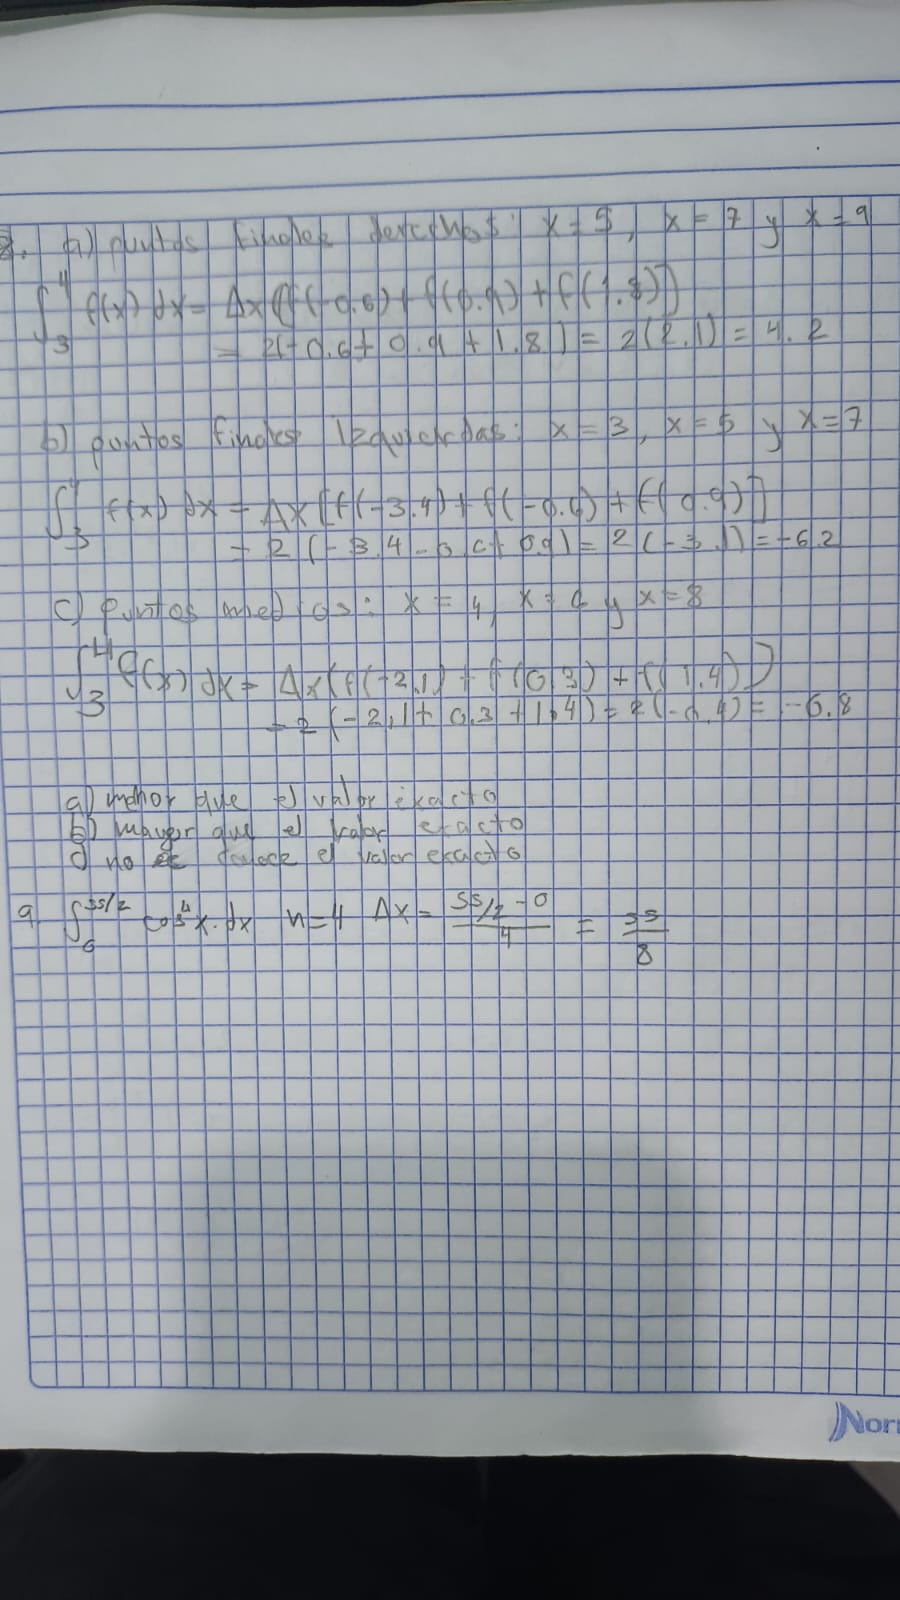 8. a) puntos finales derechos: x = 5, x = 7 y x = 9
∫₃⁴ f(x) dx = Δx [f(-0.6) + f(0.9) + f(1.8)]
= 2(-0.6 + 0.9 + 1.8) = 2(2.1) = 4.2
b) puntos finales Izquierdas: x = 3, x = 5 y x = 7
∫₃⁴ f(x) dx = Δx [f(-3.4) + f(-0.6) + f(0.9)]
= 2 (-3.4 - 0.6 + 0.9) = 2 (-3.1) = -6.2
c) puntos medios: x = 4, x = 6 y x = 8
∫₃⁴ f(x) dx = Δx (f(-2.1) + f(0.3) + f(1.4))
= 2 (-2.1 + 0.3 + 1.4) = 2(-0.4) = -6.8
a) menor que el valor exacto
b) mayor que el valor exacto
c) no el valor exacto
9. cos⁴x·dx n=4 Δx =